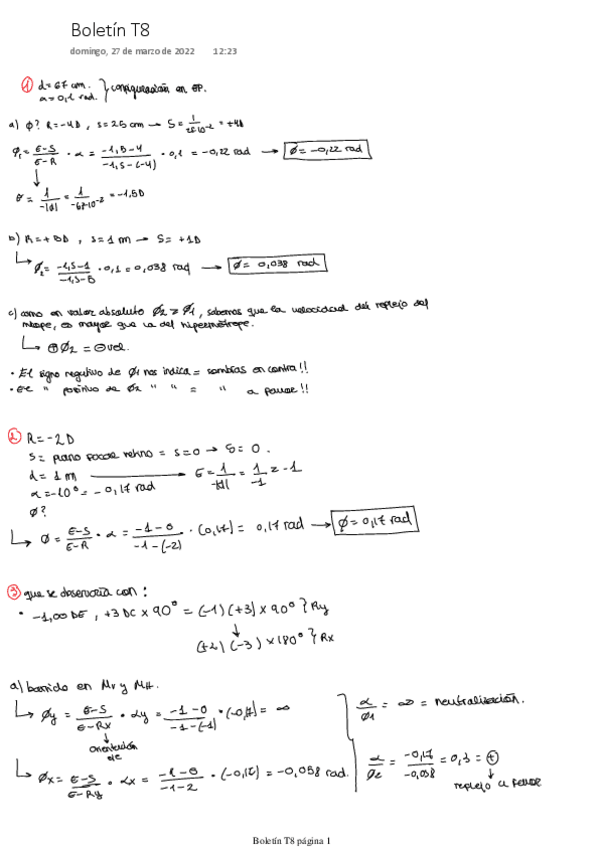 Boletín T8
domingo, 27 de marzo de 2022 12:23
① d=67 cm.
α=0,1 rad. } configuración en EP.
a) ϕ? R=-4D , s=25 cm → S= 1/25·10⁻² = +4D
ϕ₁= E-S/E-R · α = -1,5-4/-1,5-(-4) · 0,1 = -0,22 rad → ϕ=-0,22 rad
E= 1/-|d| = 1/-67·10⁻² = -1,5D
b) R=+5D , s=1 m → S= +1D
ϕ₂= -1,5-1/-1,5-5 · 0,1 = 0,038 rad → ϕ= 0,038 rad
c) como en valor absoluto ϕ₂ ≠ ϕ₁, sabemos que la velocidad del reflejo del
miope, es mayor que la del hipermétrope.
↳ ⊕ϕ₂ = ⊖vel.
• El signo negativo de ϕ₁ nos indica = sombras en contra!!
• El " positivo de ϕ₂ " " = " a favor!!
② R=-2D
S= plano retino = s=0 → S= 0.
d= 1 m → E= 1/-|d| = 1/-1 = -1
α=-10°= -0,17 rad
ϕ?
↳ ϕ= E-S/E-R · α = -1-0/-1-(-2) · (-0,17) = 0,17 rad → ϕ=0,17 rad
③ que se observaría con :
• -1,00 DE , +3 DC x 90° = (-1) (+3) x 90° } Ry
(+2) (-3) x 180° } Rx
a) barrido en Mv y MH.
↳ ϕy = E-S/E-Rx · αy = -1-0/-1-(-1) · (-0,17) = ∞
orientación
eje
α/ϕ₁ = ∞ = neutralización.
↳ ϕx= E-S/E-Ry · αx = -1-0/-1-2 · (-0,17) = -0,058 rad.
α/ϕ₂ = -0,17/-0,058 = 0,3 = ⊕
reflejo a favor
Boletín T8 página 1